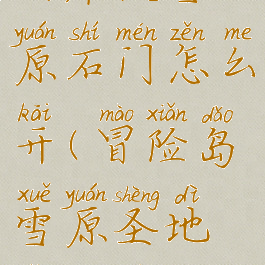 yuán shí mén zěn me
原石门怎么
kāi mào xiǎn dǎo
开(冒险岛
xuě yuán shèng dì
雪原圣地